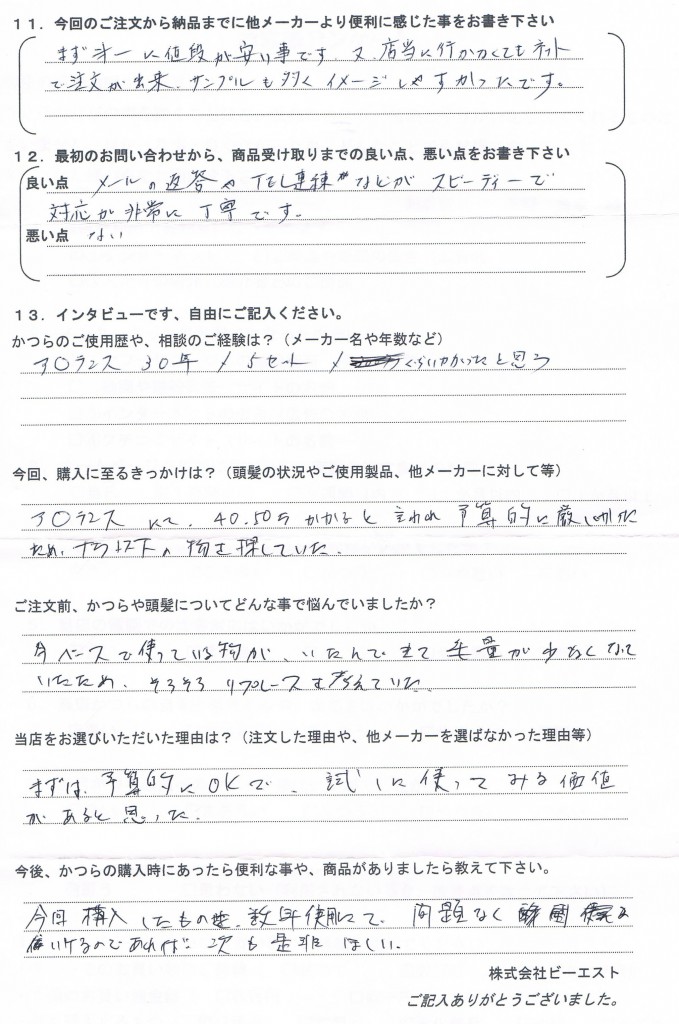 １１．今回のご注文から納品までに他メーカーより便利に感じた事をお書き下さい
まず才一に値段が安い事です。又、店当に行かなくてもネット
で注文が出来、サンプルも多くイメージしやすかったです。
１２．最初のお問い合わせから、商品受け取りまでの良い点、悪い点をお書き下さい
良い点 メールの返答やTEL連絡などがスピーディーで
対応が非常に丁寧です。
悪い点 ない
１３．インタビューです、自由にご記入ください。
かつらのご使用歴や、相談のご経験は？（メーカー名や年数など）
ア〇ランス 30年 / 5セット / くらいかかったと思う
今回、購入に至るきっかけは？（頭髪の状況やご使用製品、他メーカーに対して等）
ア〇ランスにて、40.50万かかると言われ予算的に厳しかった
ため、以下の物を探していた。
ご注文前、かつらや頭髪についてどんな事で悩んでいましたか？
今ベースで使っている物が、いたんできて毛量が少なくなって
いたため、そろそろリプレースを考えていた。
当店をお選びいただいた理由は？（注文した理由や、他メーカーを選ばなかった理由等）
まずは、予算的にOKで、試しに使ってみる価値
があると思った。
今後、かつらの購入時にあったら便利な事や、商品がありましたら教えて下さい。
今回購入したものを、数年使用にて、問題なく
使いけるのであれば次も是非ほしい。
株式会社ビーエスト
ご記入ありがとうございました。